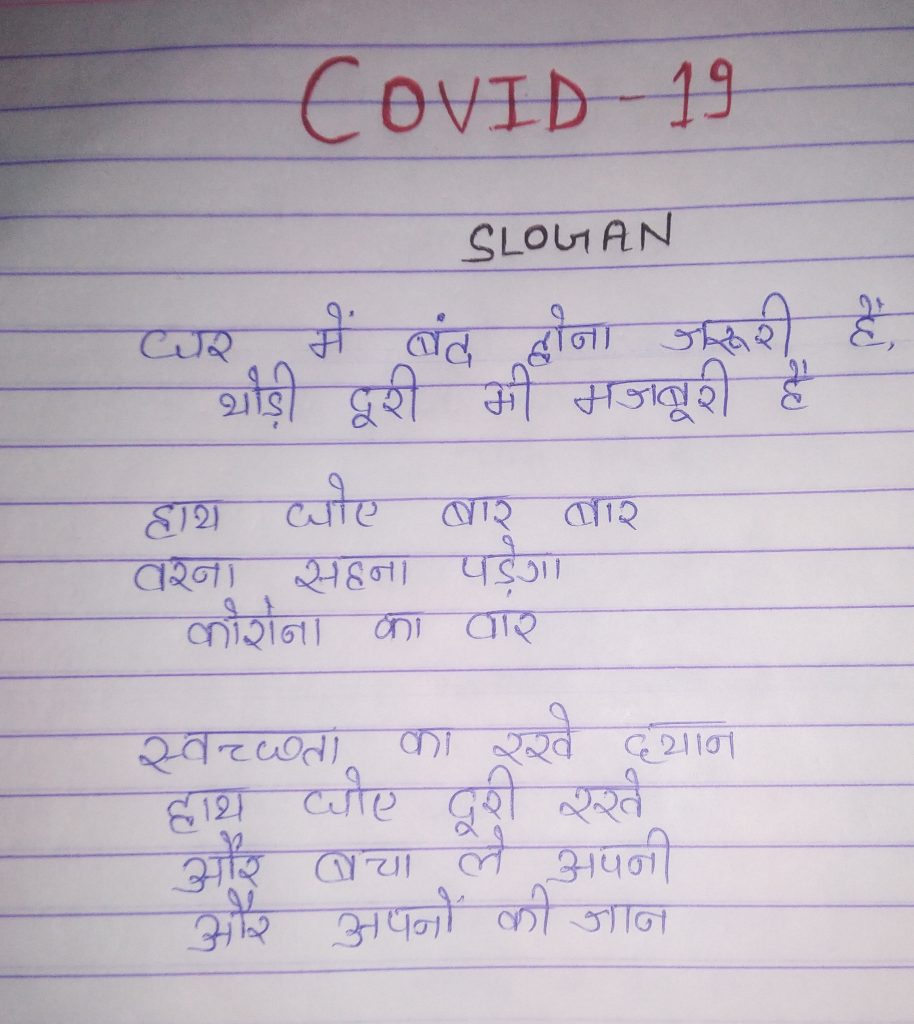 COVID-19
SLOGAN
घर में बंद होना जरूरी हैं,
थोड़ी दूरी भी मजबूरी है
हाथ धोए बार बार
वरना सहना पड़ेगा
कोरोना का वार
स्वच्छता का रखे ध्यान
हाथ धोए दूरी रखे
और बचा ले अपनी
और अपनों की जान